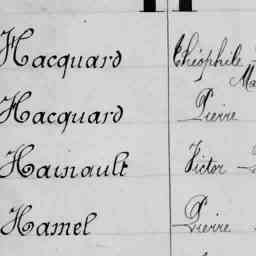 H
Hacquard Théophile
Ma
Hacquard Pierre
Hainault Victor
Hamel Pierre